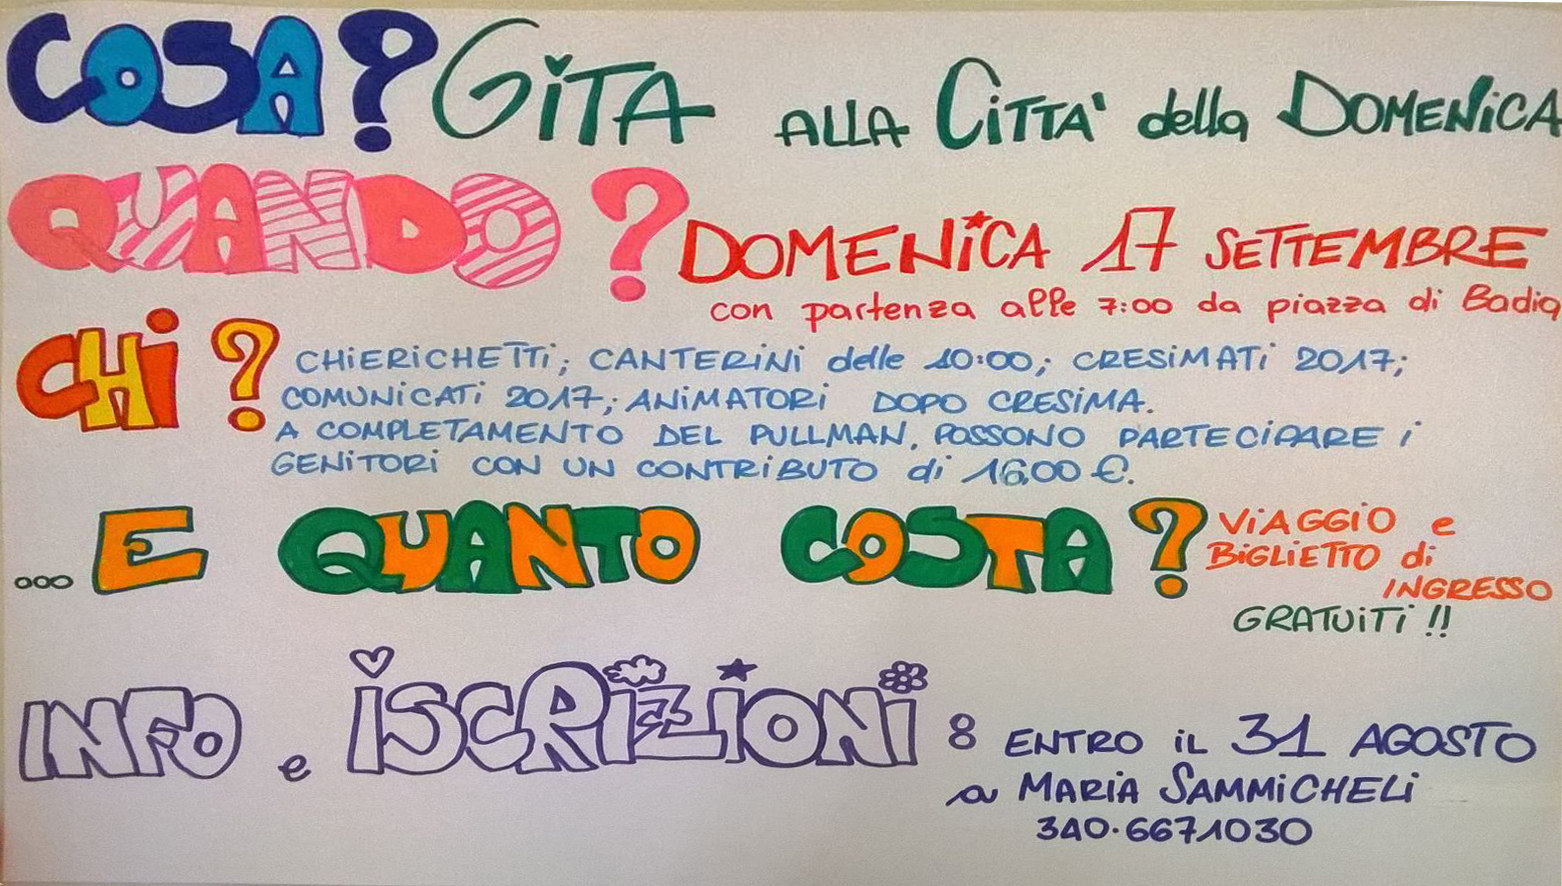 COSA? GiTA ALLA CiTTA' della DOMENiCA
QUANDO? DOMENiCA 17 SETTEMBRE
con partenza alle 7:00 da piazza di Badia
CHi? CHiERiCHETTi; CANTERiNi delle 10:00; CRESiMATi 2017;
COMUNiCATi 2017; ANiMATORi DOPO CRESiMA.
A COMPLETAMENTO DEL PULLMAN, POSSONO PARTECiPARE i
GENiTORi CON UN CONTRiBUTO di 16,00 €.
...E QUANTO COSTA? ViAGGiO e
BiGLiETTO di
INGRESSO
GRATUiTi!!
INFO e iSCRiZiONi: ENTRO iL 31 AGOSTO
a MARiA SAMMiCHELi
340.6671030